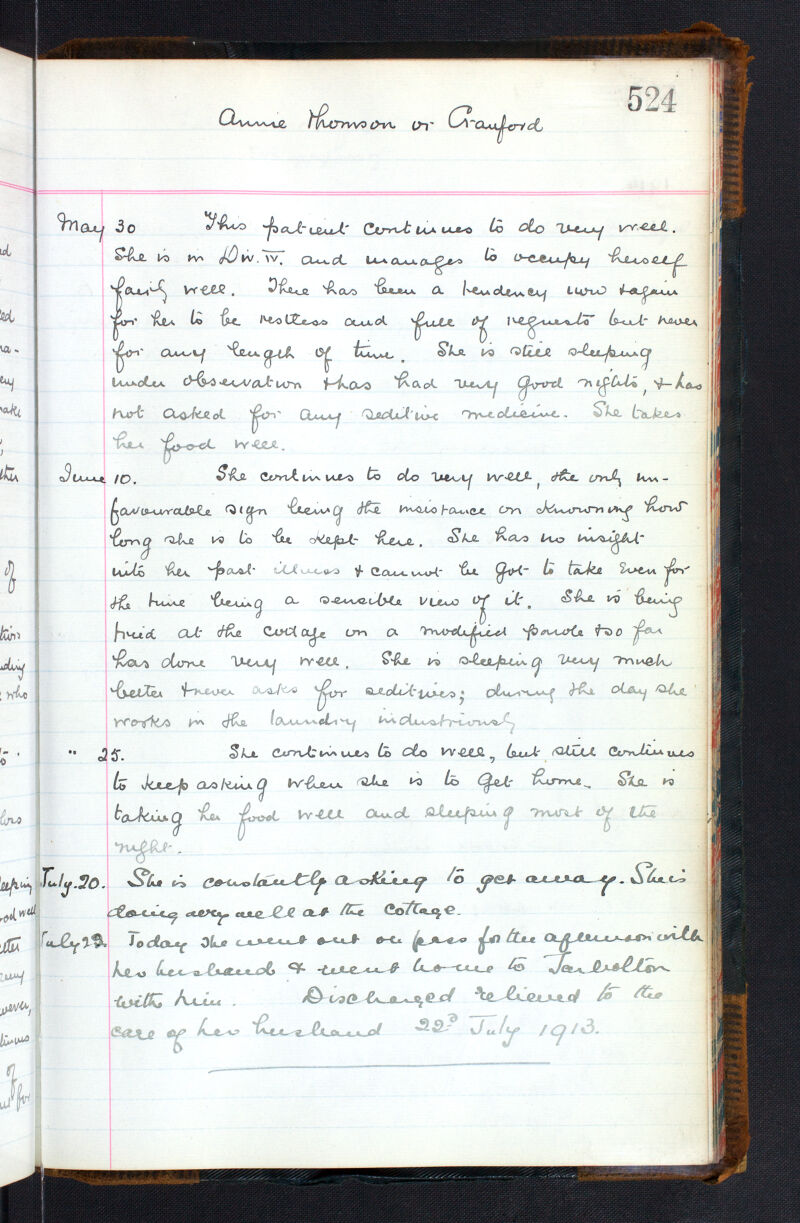 524
Annie Thomson or Cranford
May 30 This patient continues to do very well.
She is in Div. IV. and manages to occupy herself
fairly well. There has been a tendency now & again
for her to be restless and full of requests but never
for any length of time. She is still sleeping
under observation & has had very good nights, & has
not asked for any seditive medicine. She takes
her food well.
June 10. She continues to do very well, the only un-
favourable sign being the insistance on knowning how
long she is to be kept here. She has no insight
into her past illness & cannot be got to take even for
the time being a sensible view of it. She is being
tried at the cottage on a modified parole & so far
has done very well. She is sleeping very much
better & never asks for seditives; during the day she
works in the laundry industriously
" 25. She continues to do well, but still continues
to keep asking when she is to get home. She is
taking her food well and sleeping most of the
night.
July. 20. She is constantly asking to get away. She is
doing very well at the cottage.
July 22. Today she went out on pass for the afternoon with
her husband & went home to Tarbolton
with him. Discharged relieved to the
care of her husband 22d July 1913.